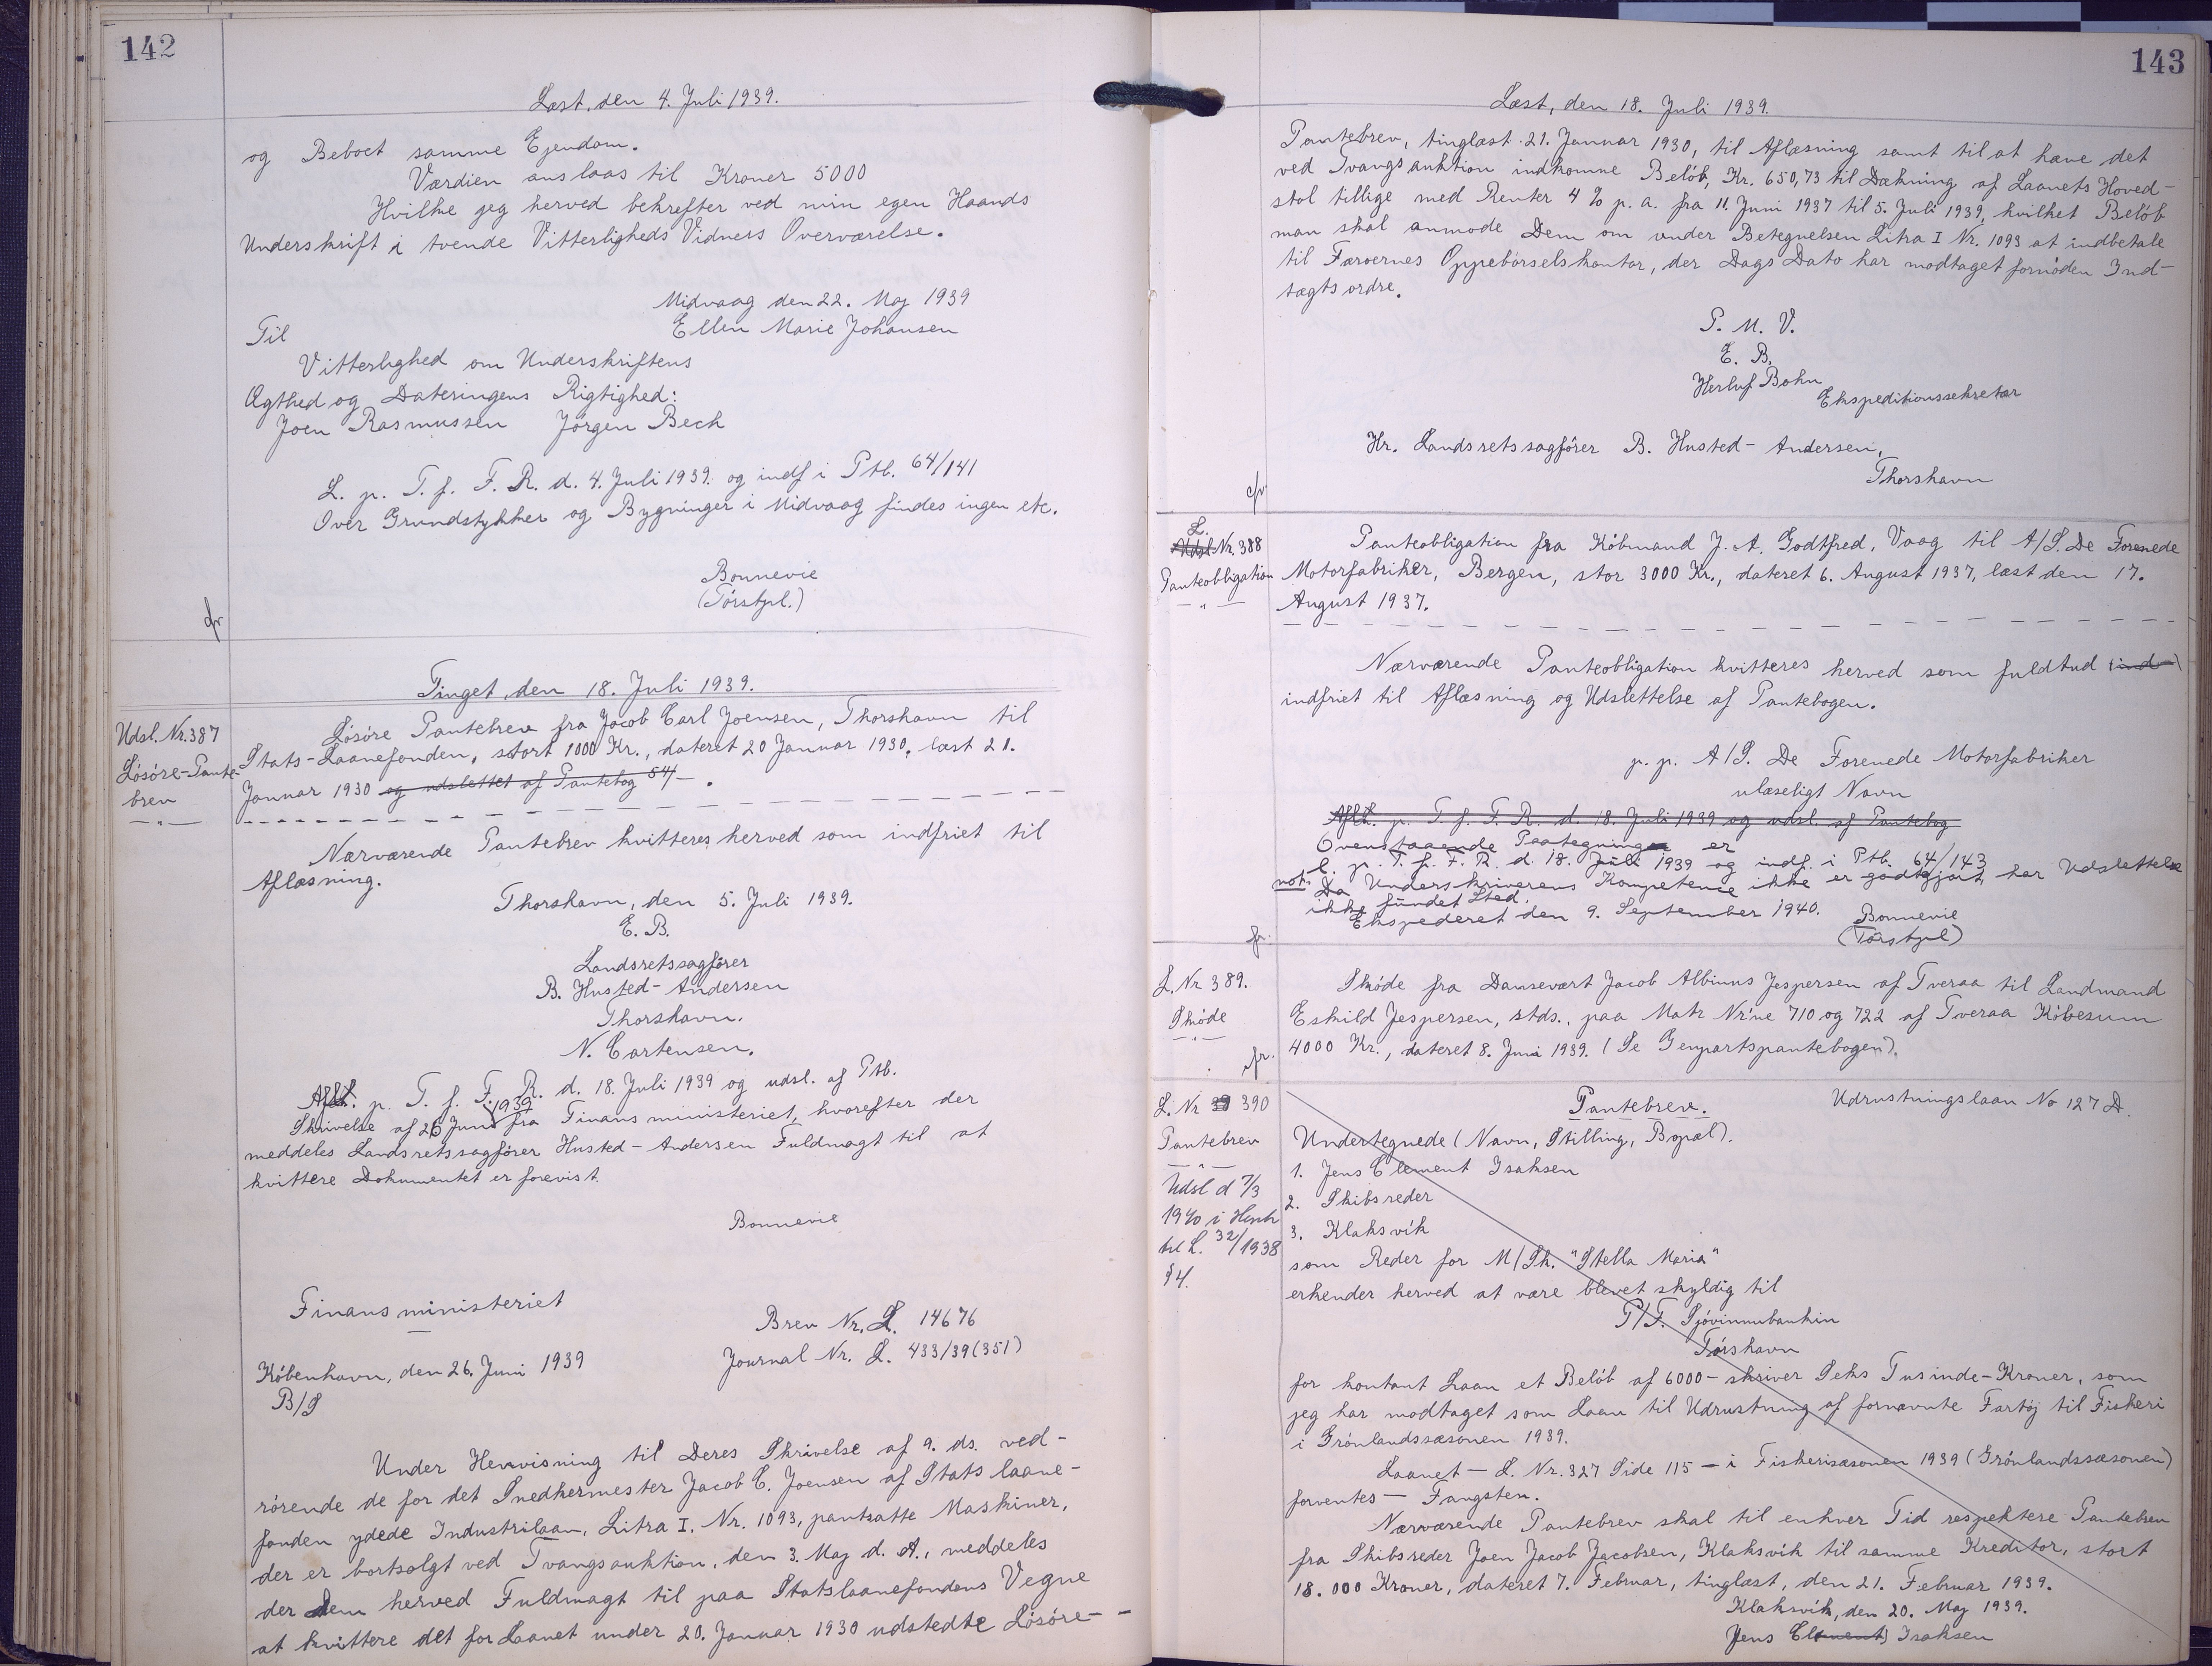 142
Læst, den 4. Juli 1939.
og Beboet samme Ejendom.
Værdien anslaas til Kroner 5000
Hvilke jeg herved bekrefter ved min egen Haands
Underskrift i tvende Vitterligheds Vidners Overværelse.
Midvaag den 22. Maj 1939
Ellen Marie Johansen
Til
Vitterlighed om Underskriftens
Ægthed og Dateringens Rigtighed:
Joen Rasmussen Jørgen Beck
L. p. T. f. F. R. d. 4. Juli 1939. og indf i Ptb. 64/141
Over Grundstykker og Bygninger i Midvaag findes ingen etc.
Bonnevie
(Tórstpl.)
cfr
Tinget, den 18. Juli 1939.
Udsl. Nr. 387
Lósóre-Pante-
brev
Lósóre Pantebrev fra Jacob Carl Joensen, Thorshavn til
Stats-Laanefonden, stort 1000 Kr., dateret 20 Januar 1930, læst 21.
Januar 1930 og udslettet af Pantebog 54/- .
Nærværende Pantebrev kvitteres herved som indfriet til
Aflæsning.
Thorshavn, den 5. Juli 1939.
E. B.
Landsretssagfører
B. Husted-Andersen
Thorshavn.
N. Cartensen.
Aflt. p. T. f. F. R. d. 18. Juli 1939 og udsl. af Ptb.
Skrivelse af 26 Juni 1939 fra Finansministeriet, hvorefter der
meddeles Landsretssagfører Husted-Andersen Fuldmagt til at
kvittere Dokumentet er forevist.
Bonnevie
Finansministeriet
Brev Nr. L. 14676
Journal Nr. L. 433/39 (351)
København, den 26. Juni 1939
B/S
Under Henvisning til Deres Skrivelse af 9. ds. ved-
rórende de for det Snedkermester Jacob C. Joensen af Statslaane-
fonden ydede Industrilaan, Litra I. Nr. 1093, pantsatte Maskiner,
der er bortsolgt ved Tvangsauktion, den 3. Maj d. A., meddeles
der Dem herved Fuldmagt til paa Statslaanefondens Vegne
at kvittere det for Laanet under 20. Januar 1930 udstedte Lósóre-
143
Læst, den 18. Juli 1939.
Pantebrev, tinglæst 21. Januar 1930, til Aflæsning samt til at hæve det
ved Tvangsauktion indkomne Belób, Kr. 650,73 til Dækning af Laanets Hoved-
stol tillige med Renter 4 % p. a. fra 11. Juni 1937 til 5. Juli 1939, hvilket Belób
man skal anmode Dem om under Betegnelsen Litra I Nr. 1093 at indbetale
til Færøernes Oppebórselskontor, der Dags Dato har modtaget fornóden Ind-
tægtsordre.
P. M. V.
E. B.
Herluf Bohn
Ekspeditionssekretær
Hr. Landsretssagfører B. Husted-Andersen,
Thorshavn
cfr
L.
Udsl. Nr. 388
Panteobligation
Panteobligation fra Købmand J. A. Godtfred, Vaag til A/S. De Forenede
Motorfabriker, Bergen, stor 3000 Kr., dateret 6. August 1937, læst den 17.
August 1937.
Nærværende Panteobligation kvitteres herved som fuldtud ind
indfriet til Aflæsning og Udslettelse af Pantebogen.
p. p. A/S. De Forenede Motorfabriker
ulæseligt Navn
Aflt. p. T. f. F. R. d. 18. Juli 1939 og udsl. af Pantebog
Ovenstaaende Paategning er
l. p. T. f. F. R. d. 18. Juli 1939 og indf. i Ptb. 64/143
not. Da Underskriverens Kompetence ikke er godtgjort, har Udslettelse
ikke fundet Sted.
Ekspederet den 9. September 1940.
Bonnevie
(Tórstpl)
cfr.
L. Nr 389.
Skóde
Skóde fra Dansevært Jacob Albinus Jespersen af Tveraa til Landmand
Eskild Jespersen, stds., paa Matr Nr'ne 710 og 722 af Tveraa Kóbesum
4000 Kr., dateret 8. Juni 1939. (Se Genpartspantebogen).
cfr.
L. Nr 390
Pantebrev
Udsl d 7/3
1940 i Henh
til L. 32/1938
§4.
Pantebrev.
Udrustningslaan No 127 A.
Undertegnede (Navn, Stilling, Bopæl).
1. Jens Clement Isaksen
2. Skibsreder
3. Klaksvík
som Reder for M/Sk. "Stella Maria"
erkender herved at være blevet skyldig til
P/F. Sjóvinnubankin
Tórshavn
for kontant Laan et Belób af 6000 - skriver Seks Tusinde-Kroner, som
jeg har modtaget som Laan til Udrustning af fornævnte Fartój til Fiskeri
i Grónlandssæsonen 1939.
Laanet - L. Nr. 327 Side 115 - i Fiskerisæsonen 1939 (Grónlandssæsonen)
forventes - Fangsten.
Nærværende Pantebrev skal til enhver Tid respektere Pantebrev
fra Skibsreder Joen Jacob Jacobsen, Klaksvík til samme Kreditor, stort
18.000 Kroner, dateret 7. Februar, tinglæst, den 21. Februar 1939.
Klaksvík, den 20. Maj 1939.
Jens Clement Isaksen